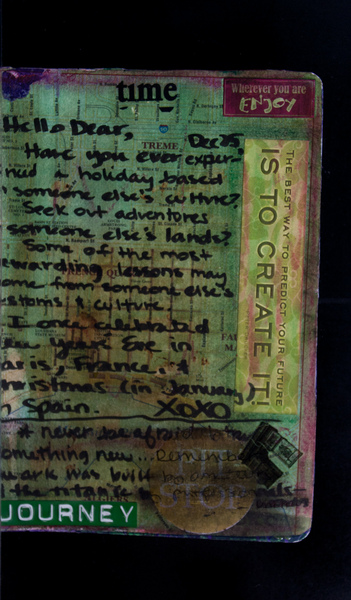 time
Wherever you are
ENJOY
Hello Dear,
Dec 25
TREME
Have you ever exper-
ned a holiday based
someone else's culture?
Seek out adventures
someone else's lands?
Some of the most
ewarding lessons may
ome from someone else's
ustoms & culture.
I once celebrated
ew years Eve in
aris, France, &
hristmas (in January)
n Spain. XOXO
THE BEST WAY TO PREDICT YOUR FUTURE
IS TO CREATE IT!
never be afraid to try
omething new... Remember
ark was built
the titanic
JOURNEY